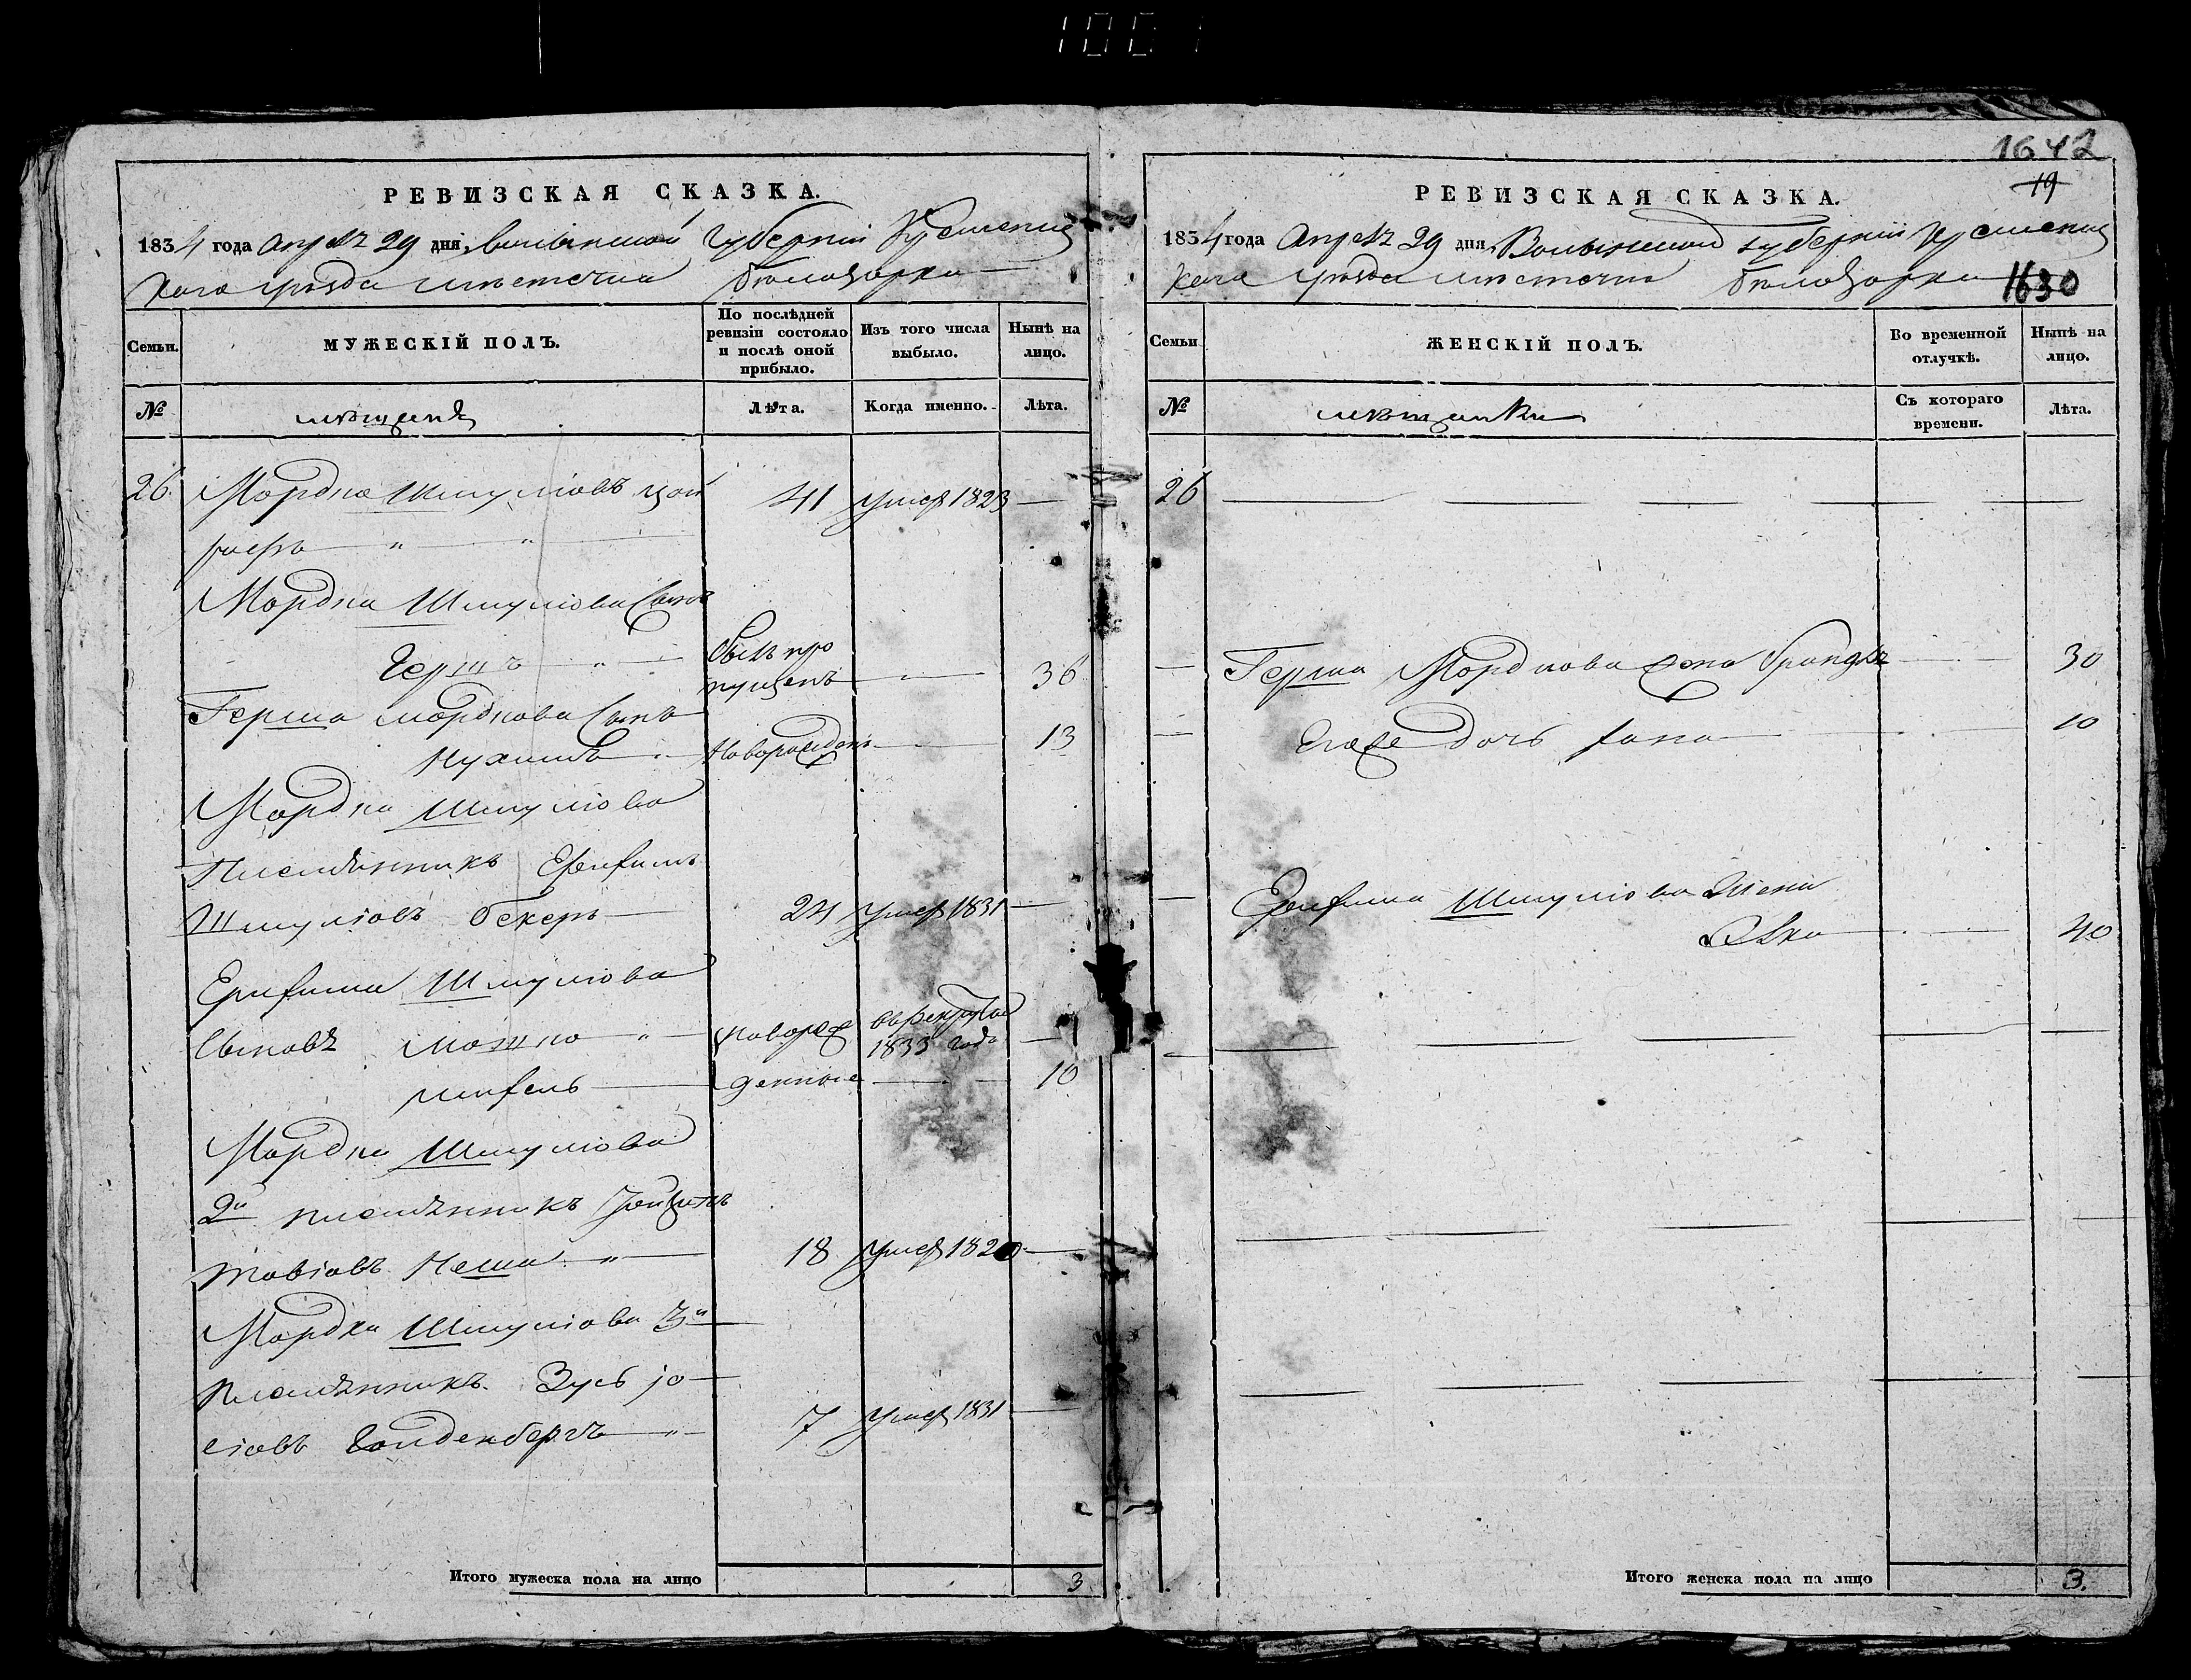 1001
1642
19
РЕВИЗСКАЯ СКАЗКА.
1834 года апреля 29 дня Волынской Губернии Кременец
кого уезда местечка Белозорки
Семьи.
МУЖЕСКІЙ ПОЛЪ.
По послѣдней ревизіи состояло и послѣ оной прибыло.
Изъ того числа выбыло.
Нынѣ на лицо.
№
мещане
Лѣта.
Когда именно.
Лѣта.
26. Мордко Шмулiовъ 41 умер 1823
Мордка Шмулiова Сынъ
Гершъ былъ пропущенъ 36
Герша Мордкова Сынъ
Нухимъ Новорожденъ 13
Мордка Шмулiова
Племянникъ Ефроимъ
Шмулiовъ Бекеръ 24 умер 1831
Ефроима Шмулiова
Сыновя Мошко новорож в рекруты 1833 года
денные 10
Мордка Шмулiова
2й племянникъ
18 умер 1820
Мордка Шмулiова 3й
племянникъ Зусь Iо
сiовъ Голденбергъ 7 умер 1831
Итого мужеска пола на лицо 3
РЕВИЗСКАЯ СКАЗКА.
1834 года Апреля 29 дня Волынской губернии Кременец
кого уезда местечка Белозорки
1630
Семьи
ЖЕНСКІЙ ПОЛЪ.
Во временной отлучкѣ.
Нынѣ на лицо.
№
мещанки
Съ котораго времени.
Лѣта.
26
Герша Мордкова жена Франдя 30
Егоже дочь Хана 10
Ефроима Шмулiова жена
40
Итого женска пола на лицо 3.